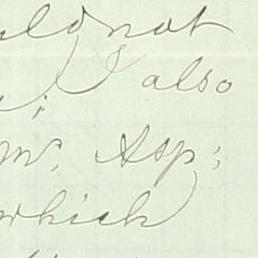 not
I also
Mr. Asp;
which